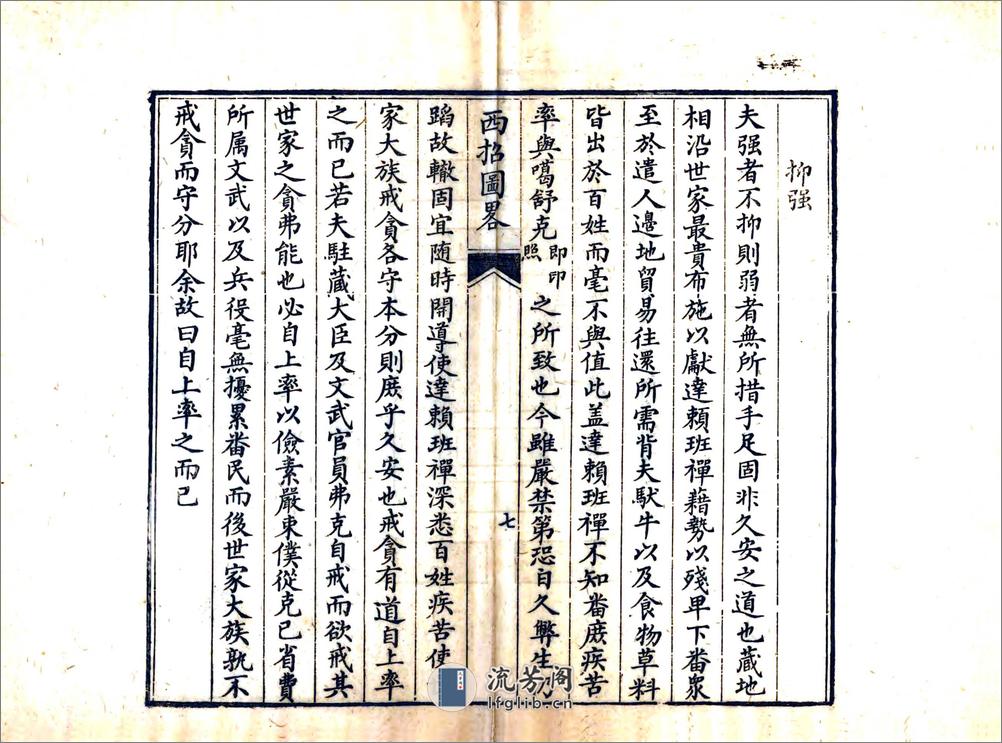 抑强
夫强者不抑則弱者無所措手足固非久安之道也蔵地
相沿世家最貴布施以獻達賴班禪藉勢以殘卑下畨衆
至於遣人邊地貿易往還所需背夫馱牛以及食物草料
皆出於百姓而毫不與值此盖達賴班禪不知畨庶疾苦
率與噶舒克即印照之所致也今雖嚴禁第恐日久弊生
西招圖畧
七
蹈故轍固宜随時開導使達賴班禪深悉百姓疾苦使
家大族戒貪各守本分則庶乎久安也戒貪有道自上率
之而已若夫駐蔵大臣及文武官員弗克自戒而欲戒其
世家之貪弗能也必自上率以儉素嚴束僕從克己省費
所属文武以及兵役毫無擾累畨民而後世家大族孰不
戒貪而守分耶余故曰自上率之而已
流芳阁
lfglib.cn